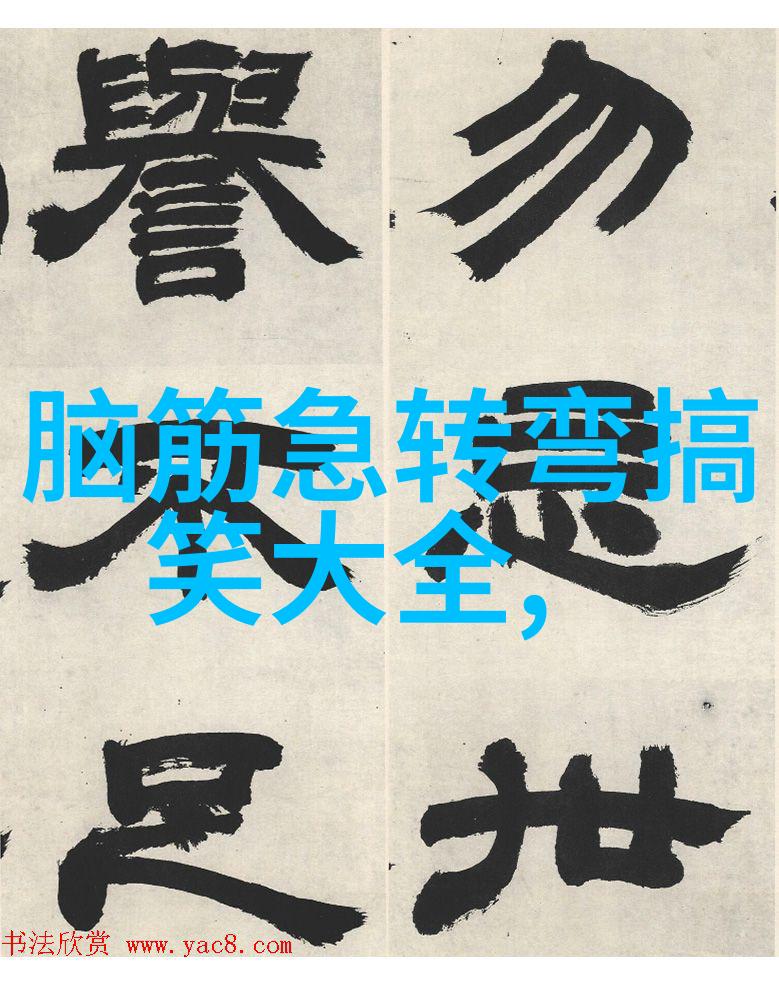 勿
譽
脑筋急转弯搞
笑大全,
世
足
书法欣赏 www.yac8.com